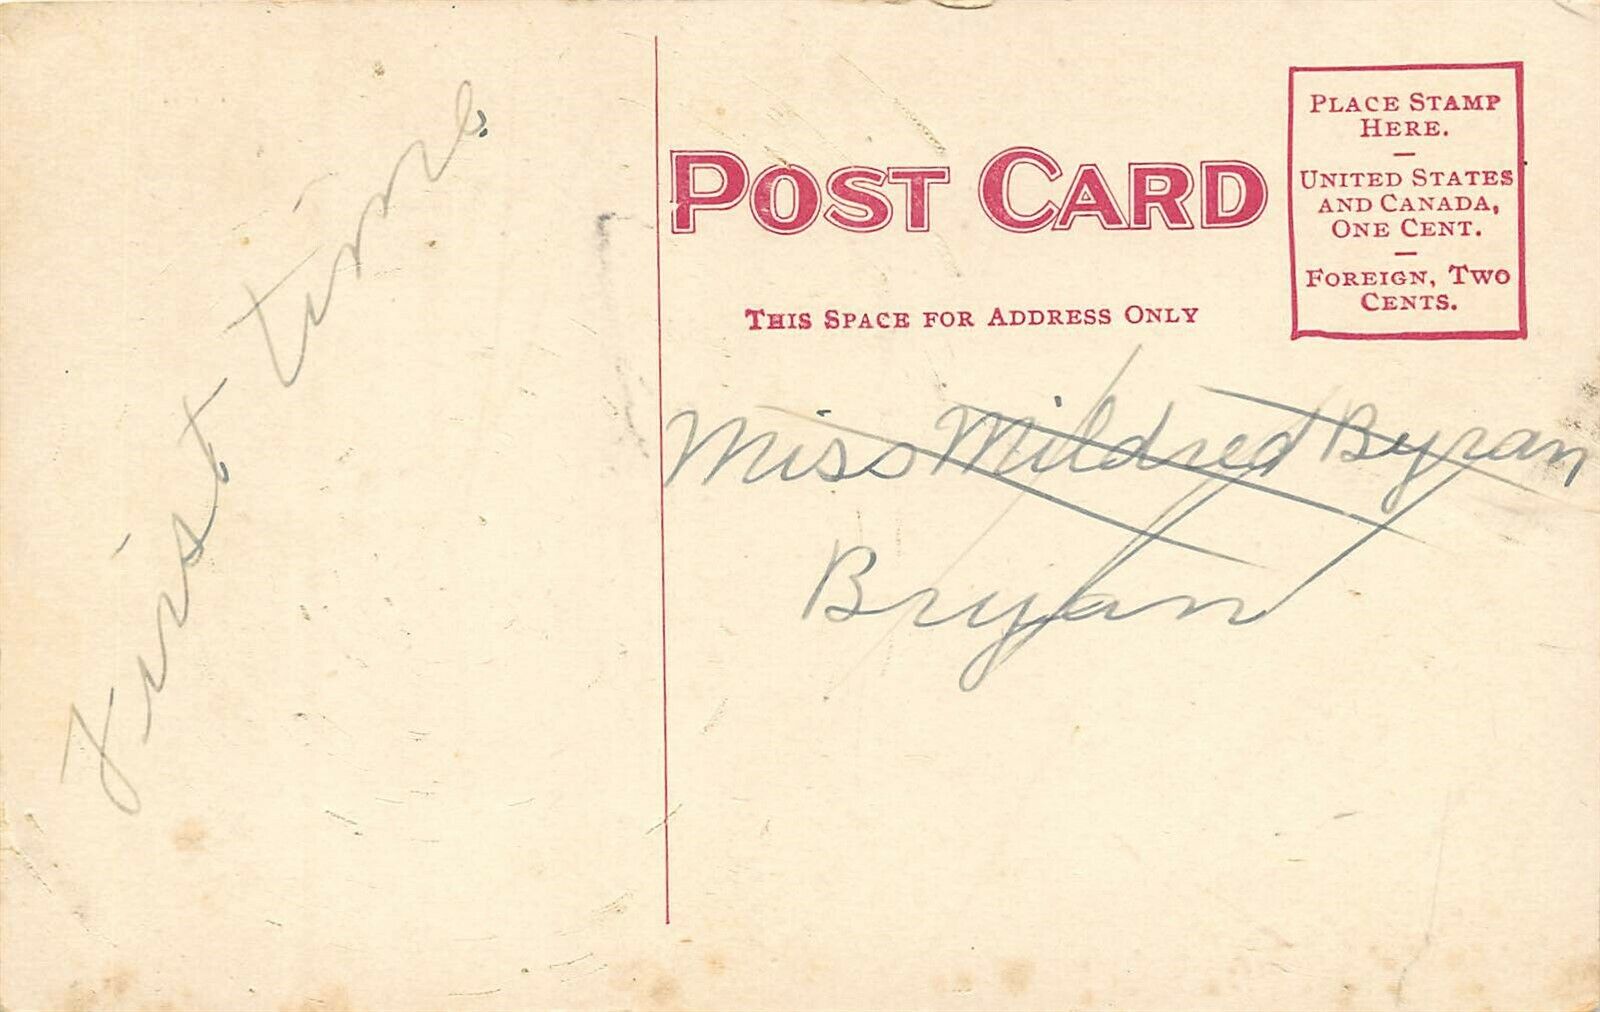 First time.
POST CARD
THIS SPACE FOR ADDRESS ONLY
PLACE STAMP
HERE.
—
UNITED STATES
AND CANADA,
ONE CENT.
—
FOREIGN, TWO
CENTS.
Miss Mildred Byran
Bryan